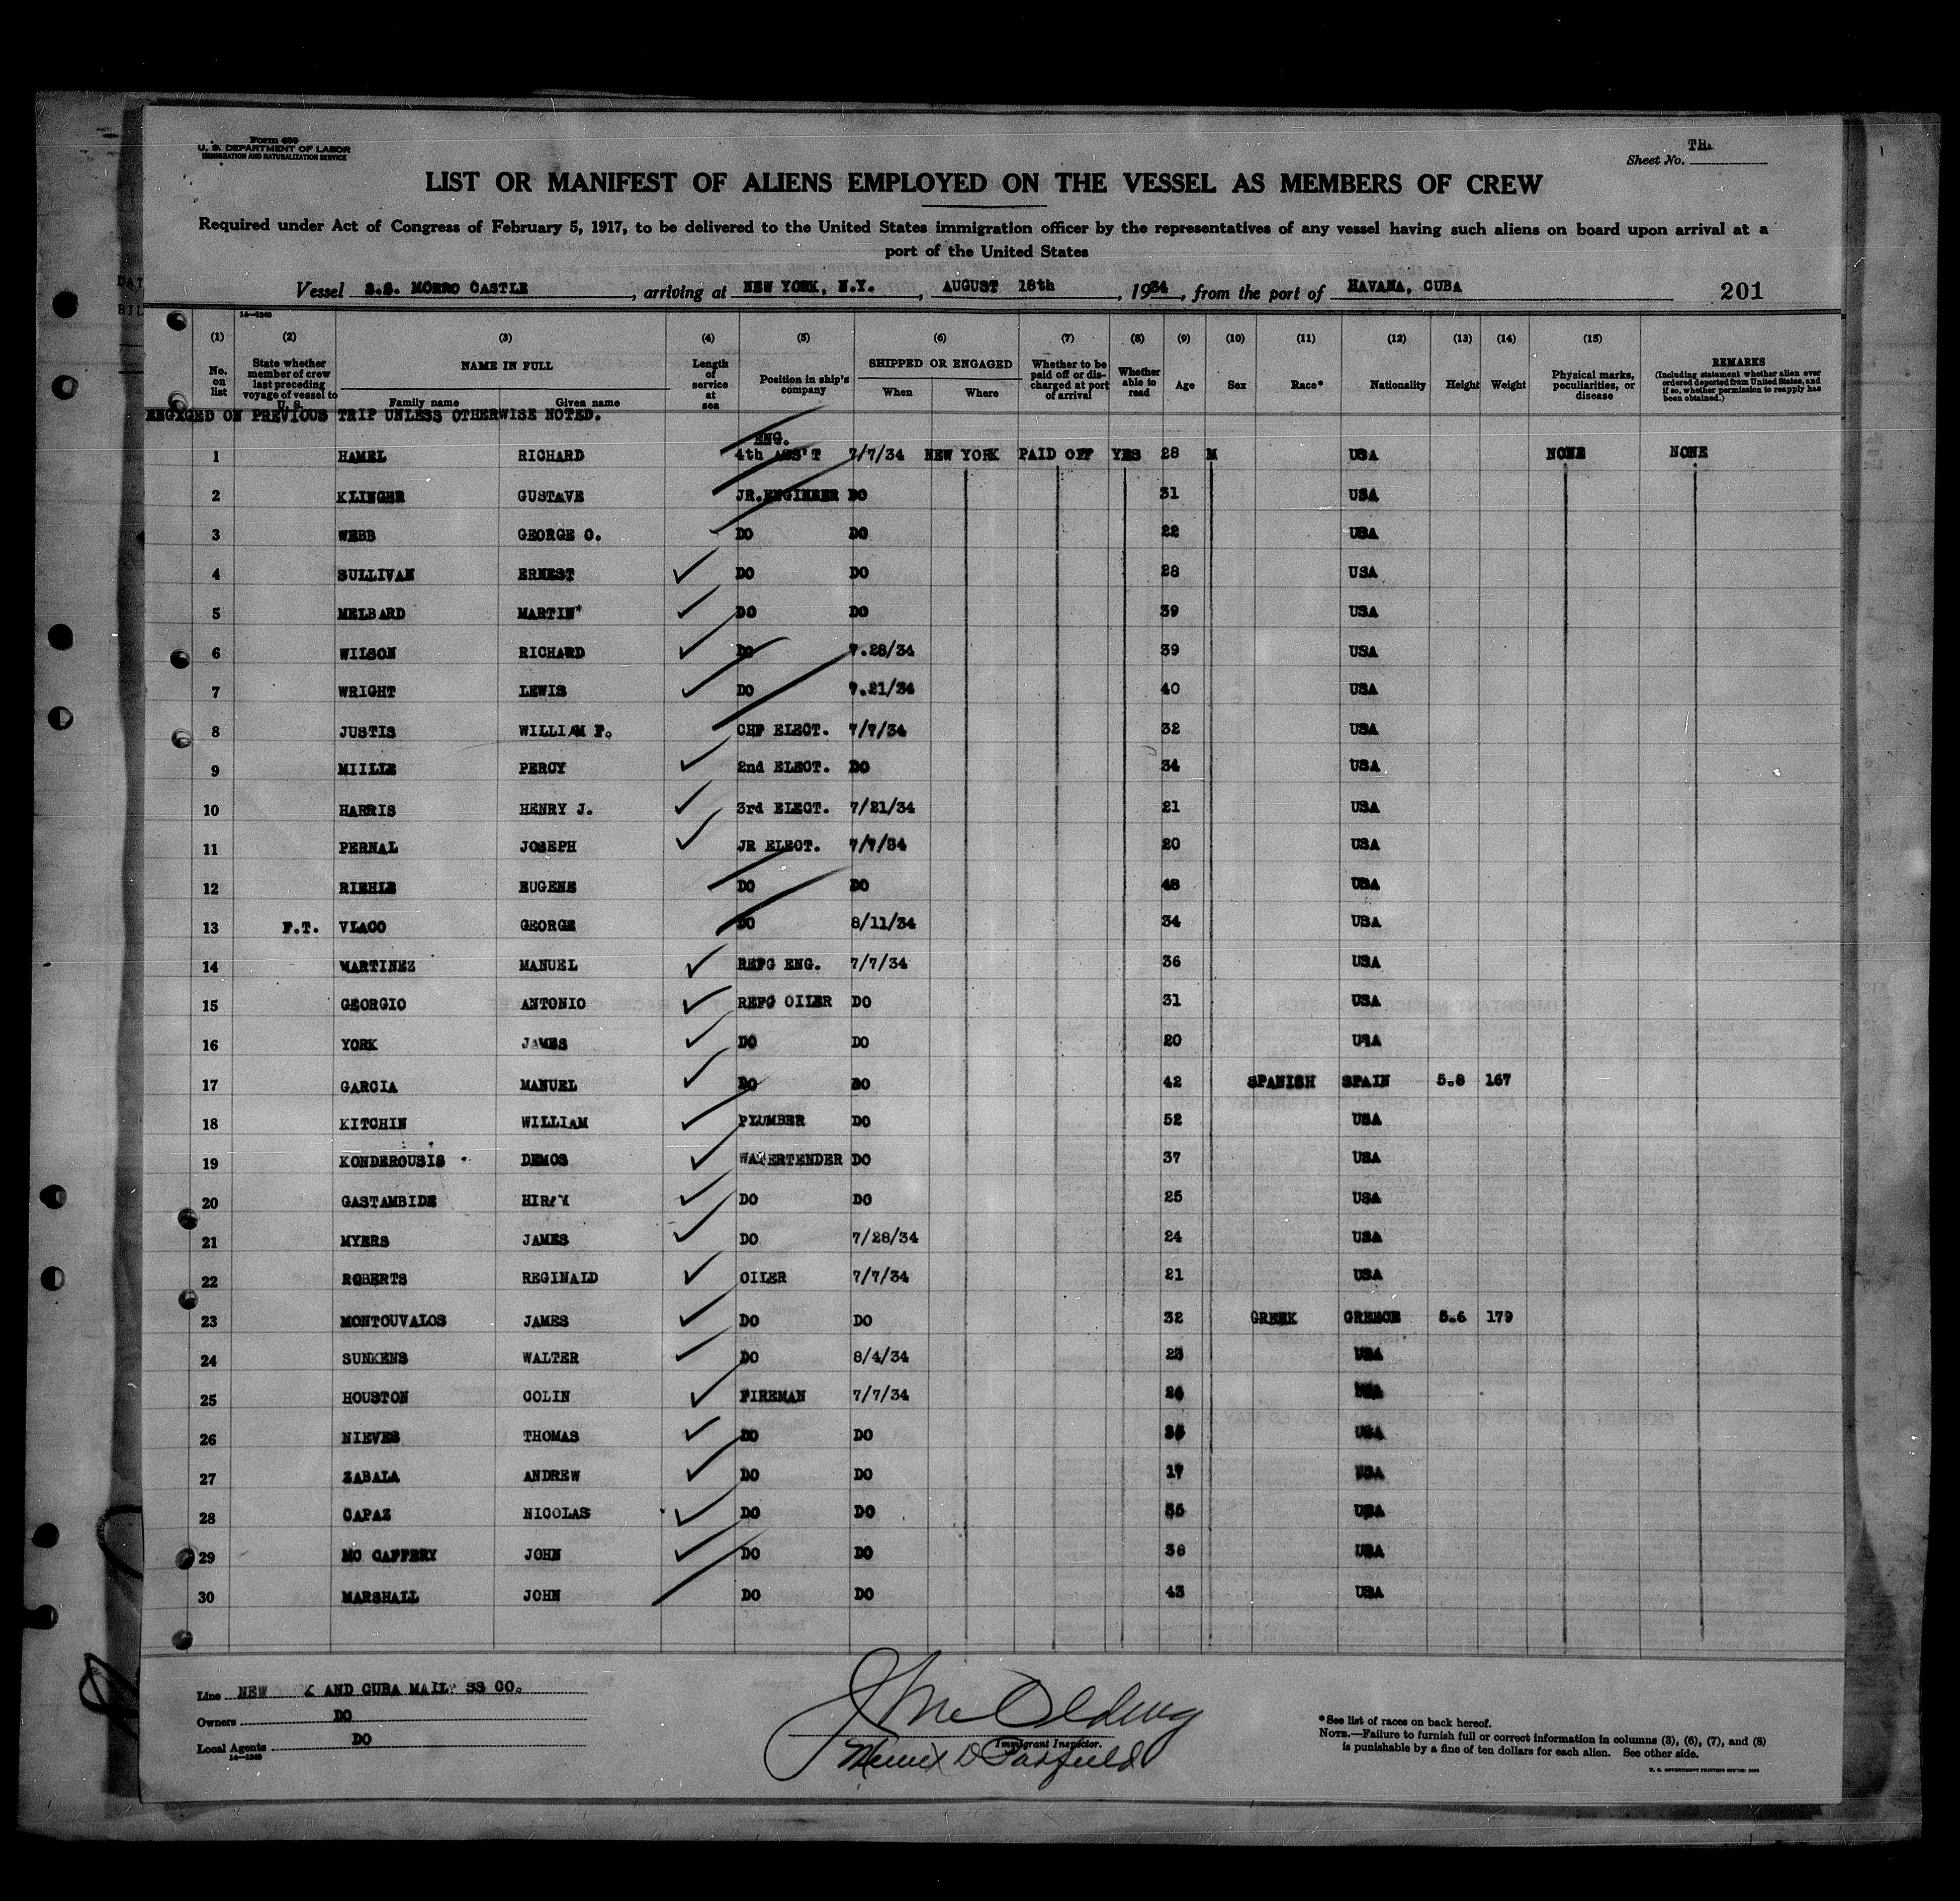 Form 680
U. S. DEPARTMENT OF LABOR
IMMIGRATION AND NATURALIZATION SERVICE
Sheet No.
LIST OR MANIFEST OF ALIENS EMPLOYED ON THE VESSEL AS MEMBERS OF CREW
Required under Act of Congress of February 5, 1917, to be delivered to the United States immigration officer by the representatives of any vessel having such aliens on board upon arrival at a
port of the United States
Vessel S.S. MORRO CASTLE, arriving at NEW YORK, N.Y., AUGUST 18th, 1934, from the port of HAVANA, CUBA 201
14—1240
(1) (2) (3) (4) (5) (6) (7) (8) (9) (10) (11) (12) (13) (14) (15)
No. on list State whether member of crew last preceding voyage of vessel to U. S. NAME IN FULL Family name Given name Length of service at sea Position in ship's company SHIPPED OR ENGAGED When Where Whether to be paid off or discharged at port of arrival Whether able to read Age Sex Race* Nationality Height Weight Physical marks, peculiarities, or disease REMARKS (Including statement whether alien ever ordered deported from United States, and if so, whether permission to reapply has been obtained.)
ENGAGED ON PREVIOUS TRIP UNLESS OTHERWISE NOTED.
1 HAMEL RICHARD ENG. 4th ASS'T 7/7/34 NEW YORK PAID OFF YES 28 M USA NONE NONE
2 KLINGER GUSTAVE JR.ENGINEER DO 31 USA
3 WEBB GEORGE O. DO DO 22 USA
4 SULLIVAN ERNEST DO DO 28 USA
5 MELBARD MARTIN DO DO 39 USA
6 WILSON RICHARD DO 7.28/34 39 USA
7 WRIGHT LEWIS DO 7.21/34 40 USA
8 JUSTIS WILLIAM F. CHF ELECT. 7/7/34 32 USA
9 MIILLE PERCY 2nd ELECT. DO 34 USA
10 HARRIS HENRY J. 3rd ELECT. 7/21/34 21 USA
11 PERNAL JOSEPH JR ELECT. 7/7/34 20 USA
12 RIEHLE EUGENE DO DO 48 USA
13 F.T. VLACO GEORGE DO 8/11/34 34 USA
14 MARTINEZ MANUEL REFG ENG. 7/7/34 36 USA
15 GEORGIO ANTONIO REFG OILER DO 31 USA
16 YORK JAMES DO DO 20 USA
17 GARCIA MANUEL DO DO 42 SPANISH SPAIN 5.8 167
18 KITCHIN WILLIAM PLUMBER DO 52 USA
19 KONDEROUSIS DEMOS WATERTENDER DO 37 USA
20 GASTAMBIDE DO DO 25 USA
21 MYERS JAMES DO 7/28/34 24 USA
22 ROBERTS REGINALD OILER 7/7/34 21 USA
23 MONTOUVALOS JAMES DO DO 32 GREEK GREECE 5.6 179
24 SUNKENS WALTER DO 8/4/34 USA
25 HOUSTON COLIN FIREMAN 7/7/34 USA
26 NIEVES THOMAS DO DO USA
27 ZABALA ANDREW DO DO USA
28 CAPAZ NICOLAS DO DO USA
29 MC CAFFERY JOHN DO DO USA
30 MARSHALL JOHN DO DO 43 USA
Line NEW AND CUBA MAIL SS CO.
Owners DO
Local Agents DO
14—1240
Immigrant Inspector.
*See list of races on back hereof.
NOTE.—Failure to furnish full or correct information in columns (3), (6), (7), and (8)
is punishable by a fine of ten dollars for each alien. See other side.